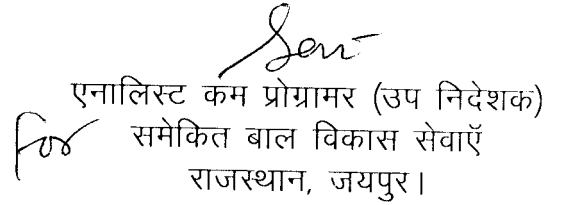 एनालिस्ट कम प्रोग्रामर (उप निदेशक)
For समेकित बाल विकास सेवाऍ
राजस्थान, जयपुर।